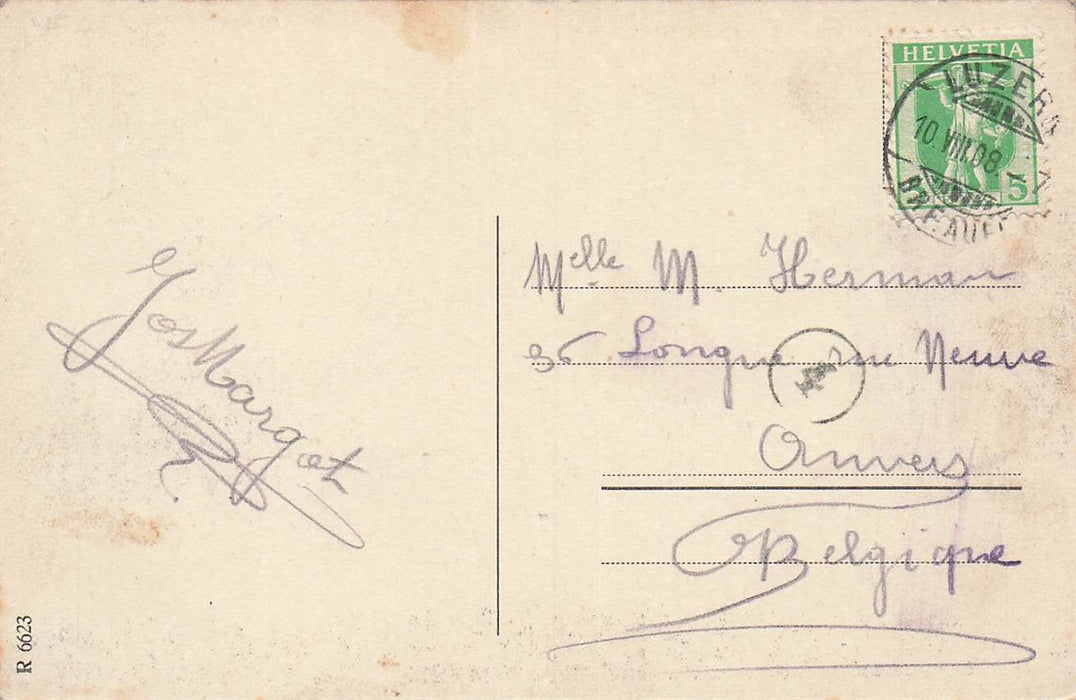 HELVETIA
5 5
LUZERN
10.VIII.08.-7
BRF. AUFG
Jos Margot
Melle M. Herman
36 Longue rue Neuve
4
Anvers
Belgique
R 6623